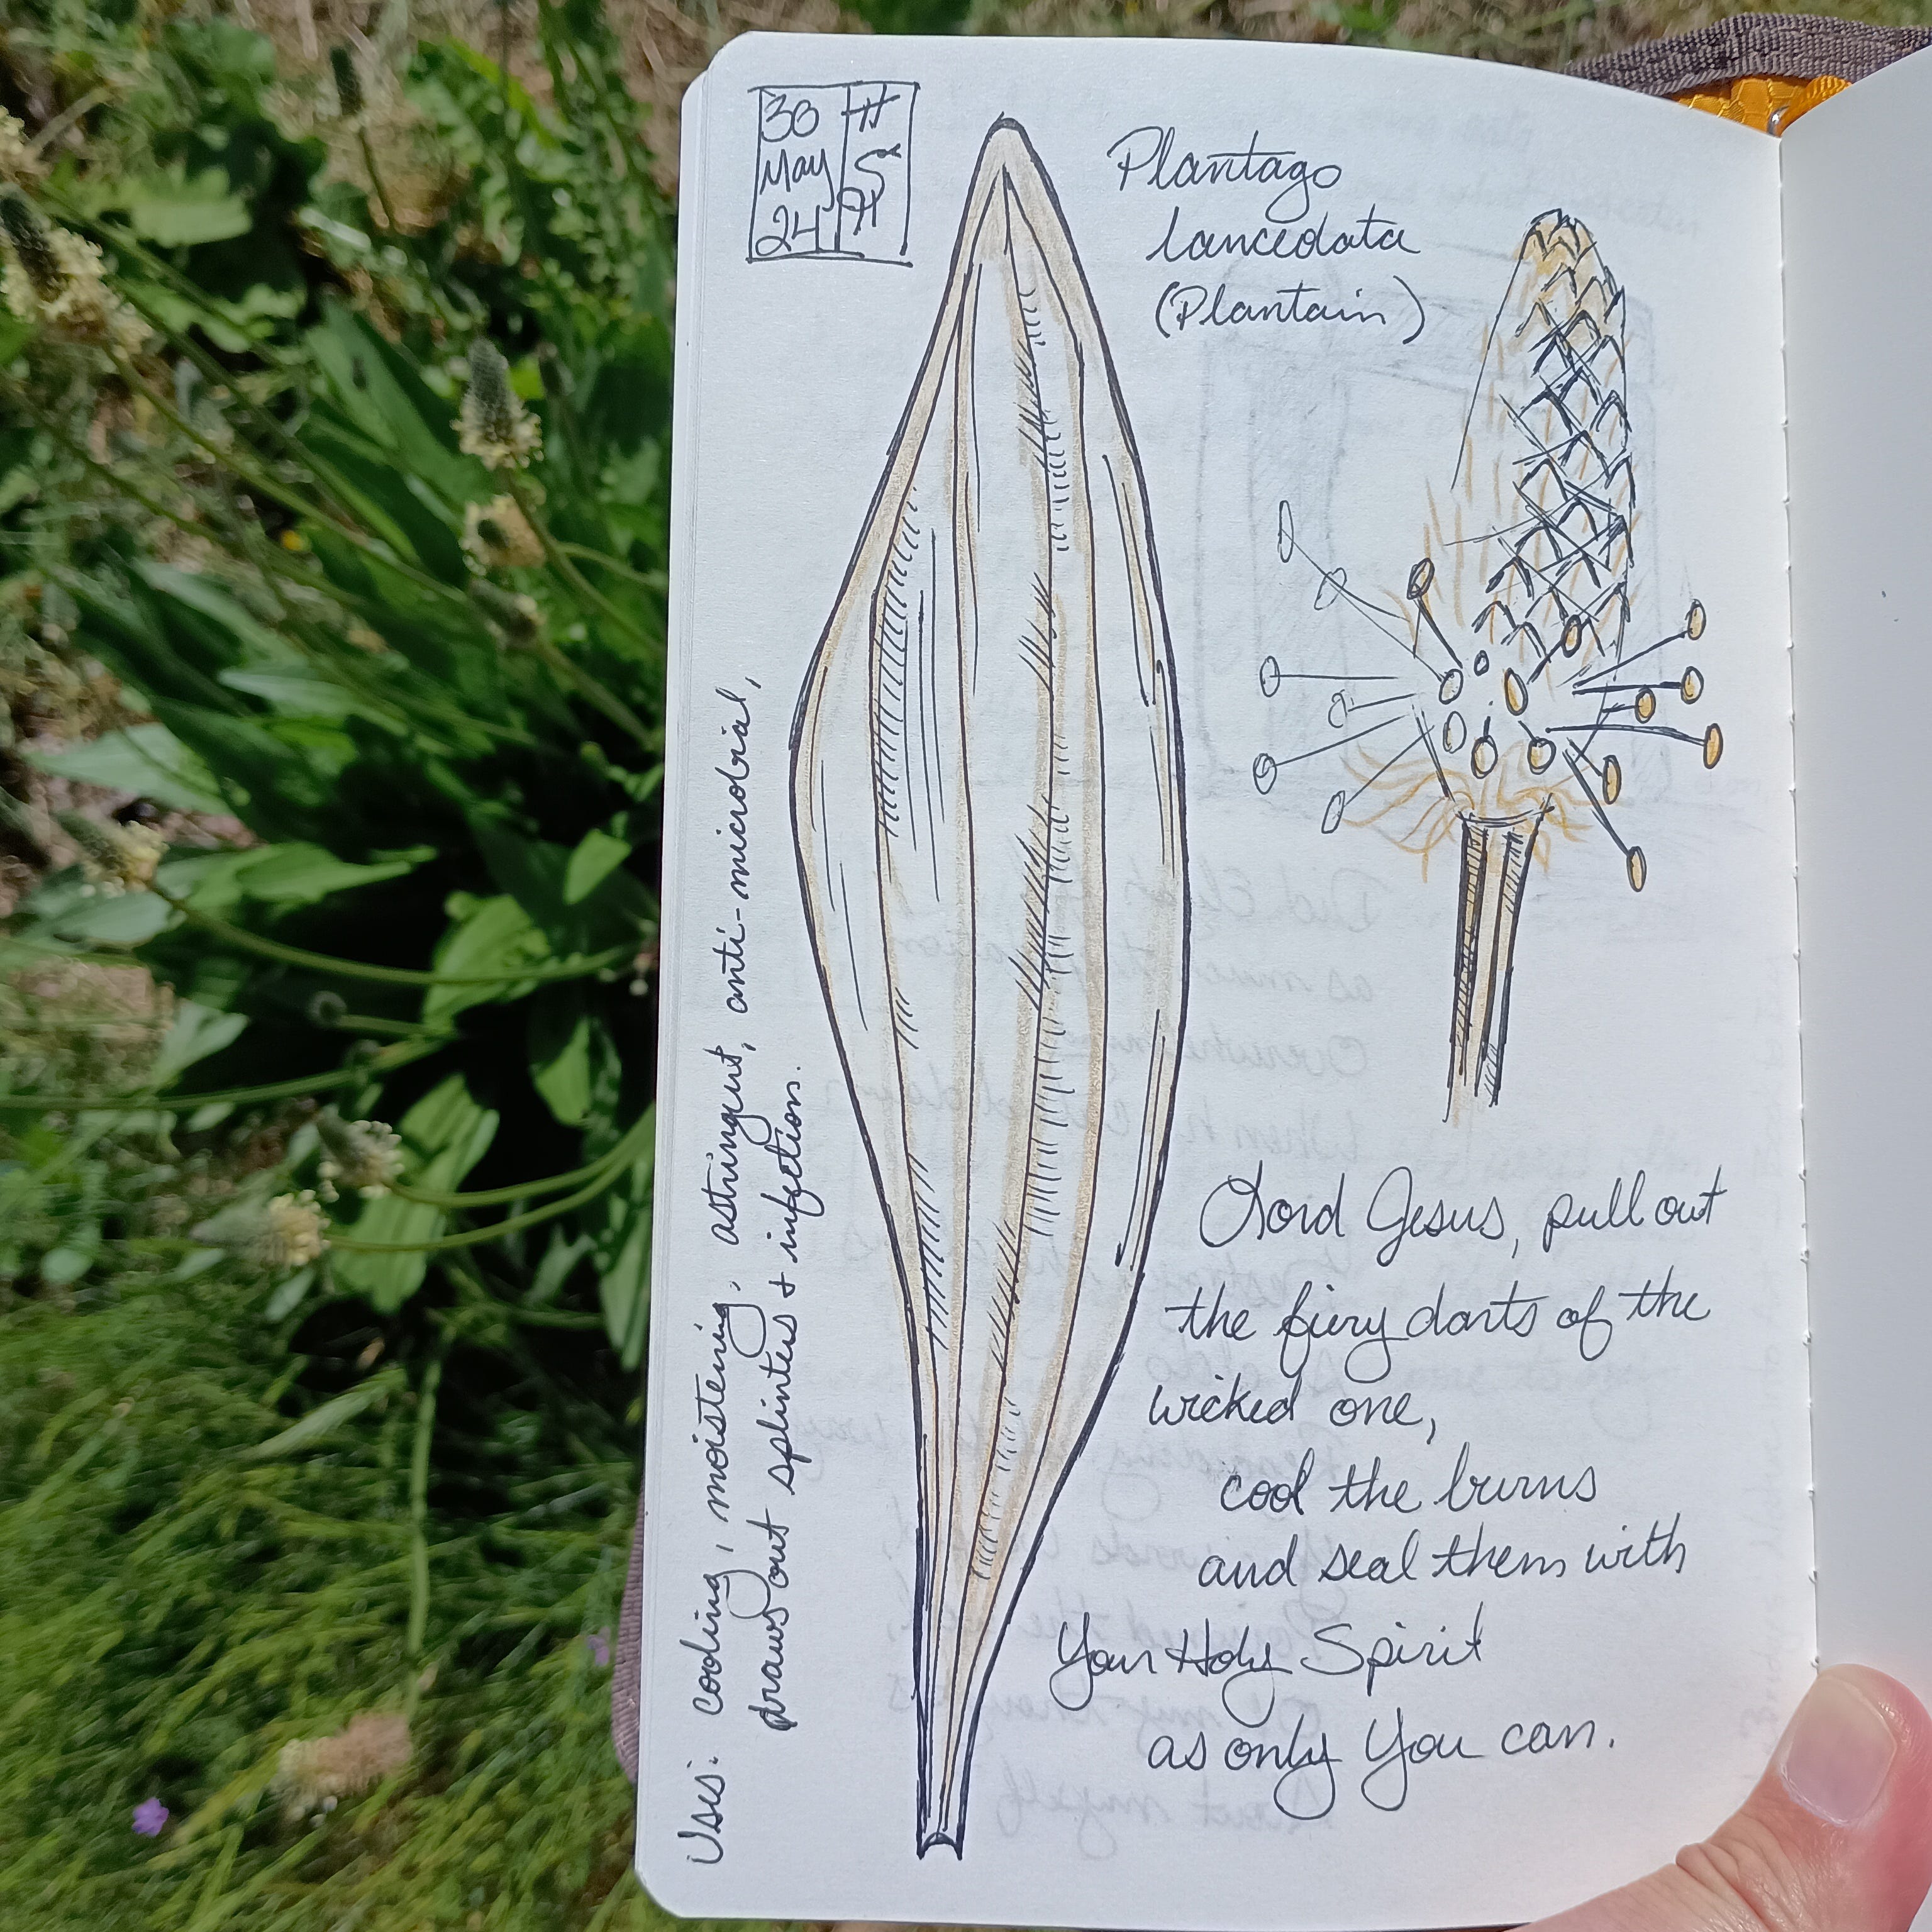 30
May
24
H
S
H
Plantago
lanceolata
(Plantain)
Uses: cooling, moistening, astringent, anti-microbial,
draws out splinters + infection.
Lord Jesus, pull out
the fiery darts of the
wicked one,
cool the burns
and seal them with
Your Holy Spirit
as only You can.